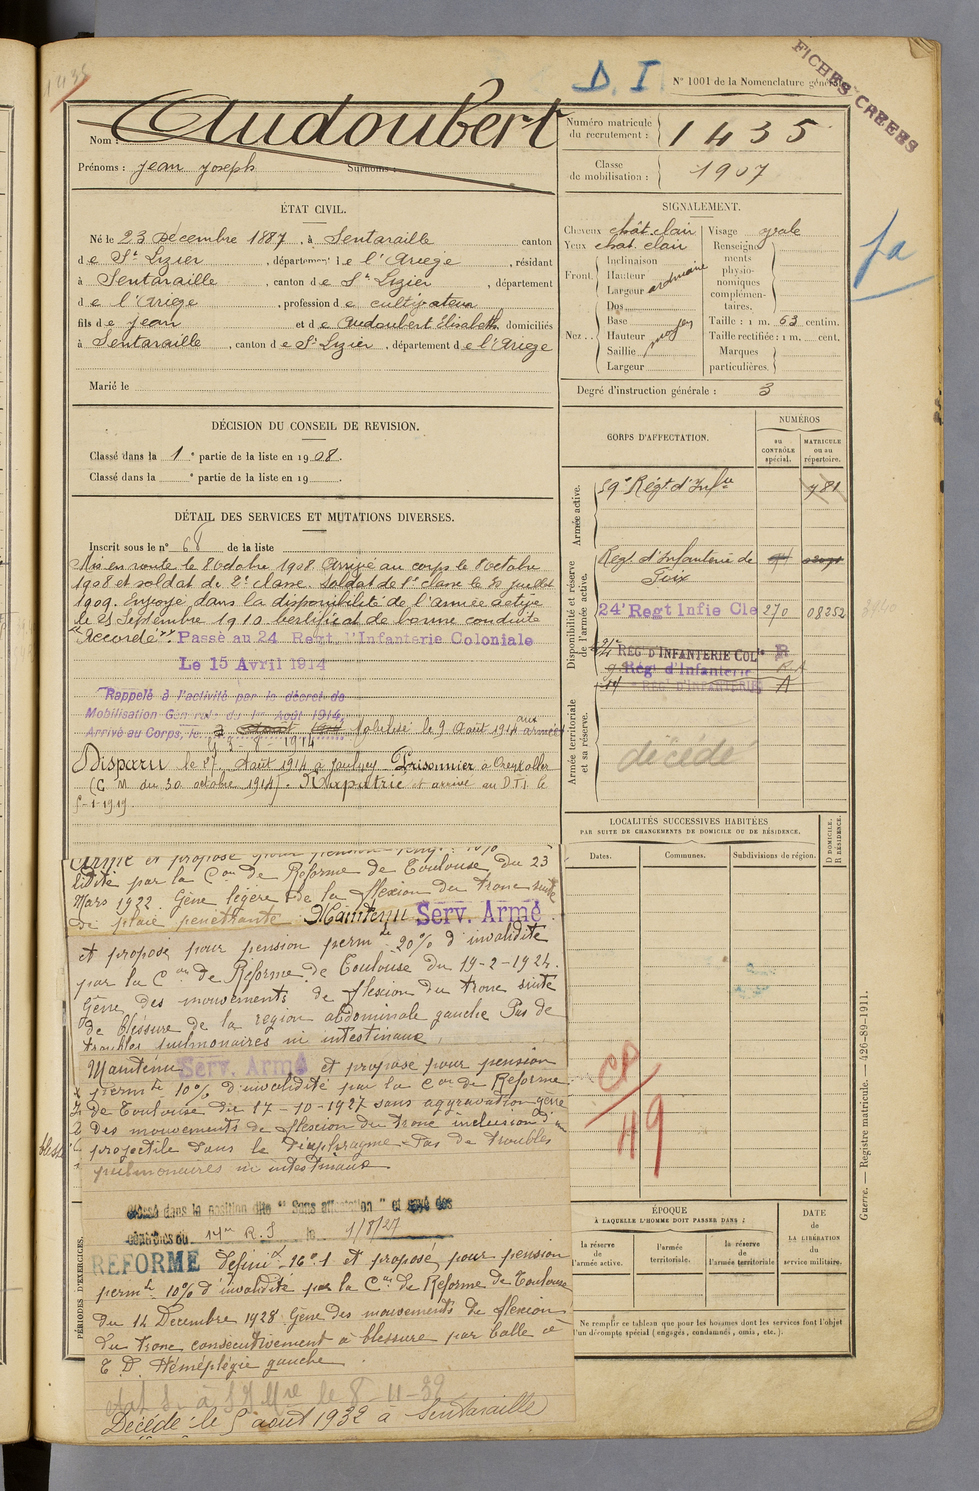 1435
D. I.
N° 1001 de la Nomenclature générale.
FICHES CRÉÉES
Nom : Audoubert
Prénoms : Jean Joseph Surnoms :
Numéro matricule du recrutement : 1435
Classe de mobilisation : 1907
ÉTAT CIVIL.
Né le 23 Décembre 1887, à Sentaraille canton
de St Lizier, département de l'Ariège, résidant
à Sentaraille, canton de St Lizier, département
de l'Ariège, profession de cultivateur
fils de Jean et de Audoubert Elisabeth, domiciliés
à Sentaraille, canton de St Lizier, département de l'Ariège
Marié le
SIGNALEMENT.
Cheveux chât. clair
Yeux chat. clair
Front. Inclinaison
Hauteur
Largeur
ordinaire
Nez.. Dos
Base
Hauteur
Saillie
Largeur
moyen
Visage ovale
Renseignements physionomiques complémentaires.
Taille : 1 m. 63 centim.
Taille rectifiée : 1 m. cent.
Marques particulières.
Degré d'instruction générale : 3
fa
DÉCISION DU CONSEIL DE REVISION.
Classé dans la 1e partie de la liste en 1908.
Classé dans la e partie de la liste en 19
DÉTAIL DES SERVICES ET MUTATIONS DIVERSES.
Inscrit sous le n° 68 de la liste
Mis en route le 8 octobre 1908. Arrivé au corps le 8 octobre
1908 et soldat de 2e classe. Soldat de 1e classe le juillet
1909. Envoyé dans la disponibilité de l'armée active
le 25 Septembre 1910 certificat de bonne conduite
"Accordé". Passé au 24 Regt. d'Infanterie Coloniale
Le 15 Avril 1914
Rappelé à l'activité par le décret de
Mobilisation Générale du 1er Août 1914.
Arrivé au Corps, le 3-8-1914 Mobilisé le 9 Août 1914 aux armées
Disparu le 27 Août 1914 à Jaulnay Prisonnier à
(C. M du 30 octobre 1914). Rapatrié et arrivé au D.T.I. le
5-1-1919.
CORPS D'AFFECTATION.
NUMÉROS
au CONTRÔLE spécial.
MATRICULE ou au répertoire.
Armée active.
59e Régt. d'Infie 781
Disponibilité et réserve de l'armée active.
Regt d'Infanterie de
Foix
24e Regt Infie Cle 270 08252
24e REG. D'INFANTERIE COLle R
9e Régt d'Infanterie R A
14e REG. D'INFANTERIE A
Armée territoriale et sa réserve.
décédé
LOCALITÉS SUCCESSIVES HABITÉES
PAR SUITE DE CHANGEMENTS DE DOMICILE OU DE RÉSIDENCE.
Dates.
Communes.
Subdivisions de région.
D DOMICILE.
R RÉSIDENCE.
lidité par la Con de Réforme de Toulouse du 23
Mars 1922. Gêne légère de la flexion du tronc suite
de plaie pénétrante. Maintenu Serv. Armé
et proposé pour pension permte 20% d'invalidité
par la Con de Réforme de Toulouse du 19-2-1924.
Gêne des mouvements de flexion du tronc suite
de blessure de la région abdominale gauche Pas de
troubles pulmonaires ni intestinaux.
Maintenu Serv. Armé et proposé pour pension
permte 10% d'invalidité par la Con de Réforme
de Toulouse du 17-10-1927 sans aggravation gêne
des mouvements de flexion du tronc inclusion d'un
projectile dans le diaphragme. Pas de troubles
pulmonaires ni intestinaux
Classé dans la position dite "Sans affectation" et rayé des
contrôles du 14me R.I le 1/8/27
REFORMÉ Définif N°1 et proposé pour pension
permte 10% d'invalidité par la Con de Réforme de Toulouse
du 14 Décembre 1928. Gêne des mouvements de flexion
du tronc consécutivement à blessure par balle
T.D. Héméplégie gauche
le 8-11-32
Décédé le 5 août 1932 à Sentaraille
49
PÉRIODES D'EXERCICES.
ÉPOQUE
À LAQUELLE L'HOMME DOIT PASSER DANS :
la réserve de l'armée active.
l'armée territoriale.
la réserve de l'armée territoriale
DATE de LA LIBÉRATION du service militaire.
Ne remplir ce tableau que pour les hommes dont les services font l'objet
d'un décompte spécial (engagés, condamnés, omis, etc.).
Guerre. — Registre matricule. — 426-89-1911.